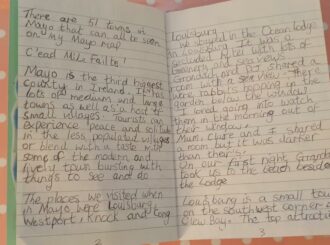 There are 51 towns in
Mayo that can all be seen
on my Mayo map
C'ead Mile Failte!
Mayo is the third biggest
County in Ireland. It has
lots of medium and large
towns as well as a lot of
small villages. Tourists can
experience peace and solitude
in the less populated villages
or blend with a taste with
some of the modern and
lively town bursting with
things to see and do
The places we visited when
in Mayo were Louisburg,
Westport, Knock and Cong
2
Louisburg
we stayed in the Ocean lodge
in Louisburg. It was a
secluded area with lots of
scenery and sea views.
Granddad and Tor shared a
room with a sea view. There
were rabbits hopping in the
garden below the window.
I loved going into watch
them in the morning out of
their window.
Mum, Clare and I shared
a room but it was darker
than theirs.
On our first night, Grandad
took us to the beach beside
the lodge
Louisburg is a small town
on the southwest corner of
Clew Bay. The top attraction
3